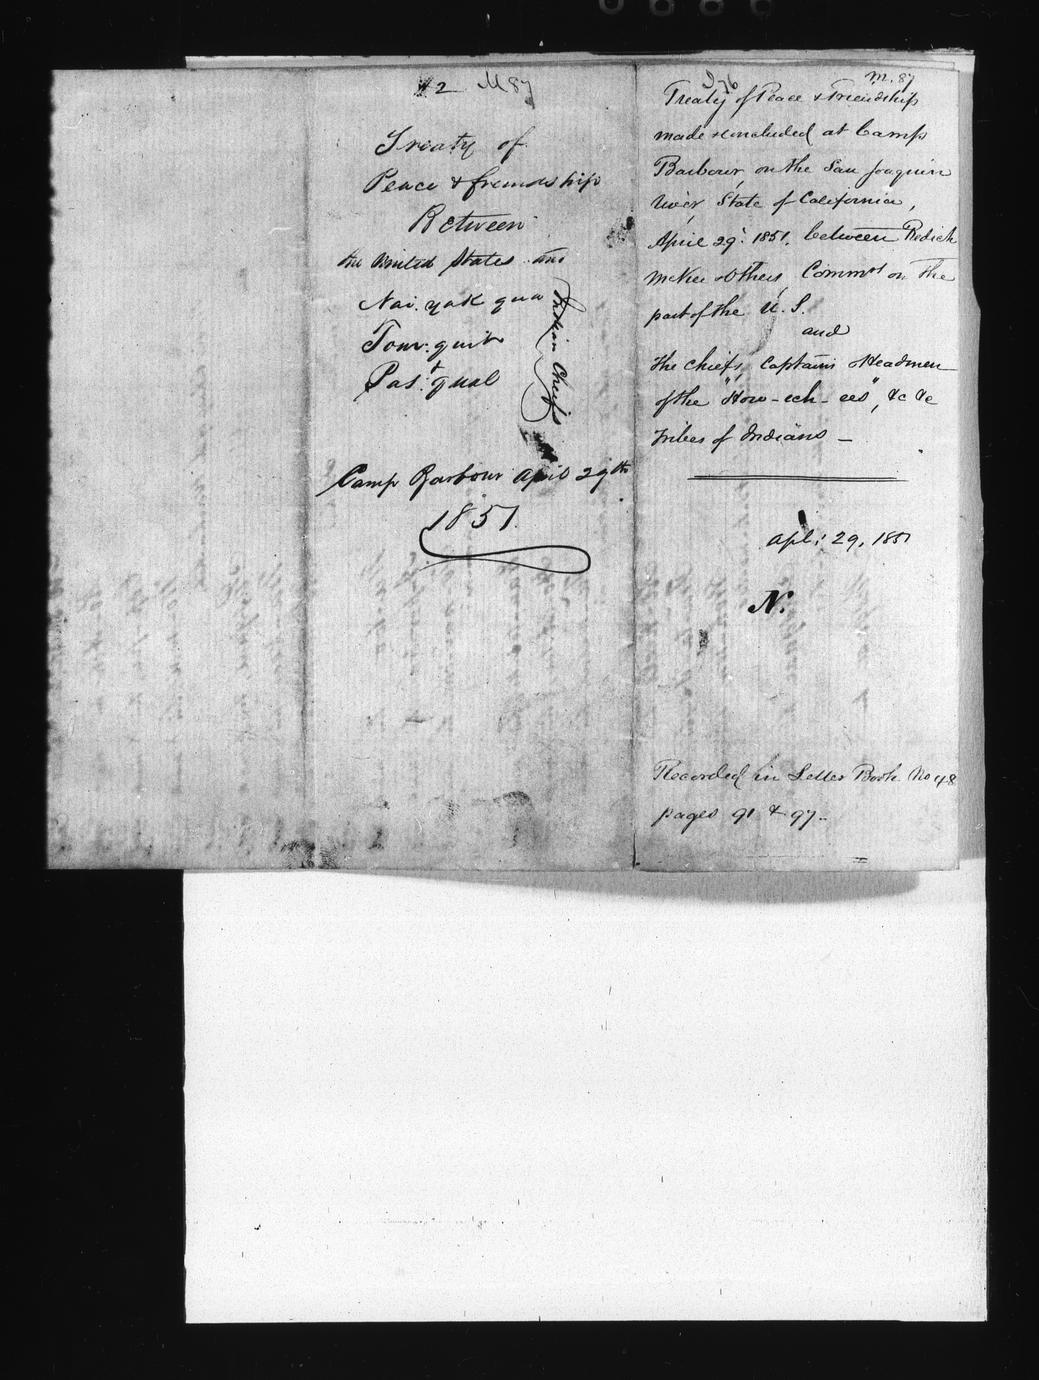 #2 M87
Treaty of
Peace & friendship
Between
the United States and
Nai. yak qua
Tom. quit
&
Pas. qual
Indian Chiefs
Camp Barbour April 29th
1851.
M. 87
Treaty of Peace & Friendship
made & concluded at Camp
Barbour, on the San Joaquin
river, State of California,
April 29th 1851, between Redick
McKee & others, Commrs on the
part of the U. S.
and
the chiefs, captains & Headmen
of the "How-ech-ees", &c &c
tribes of Indians —
Apl: 29, 1851
N.
Recorded in Letter Book No 48
pages 91 & 97.